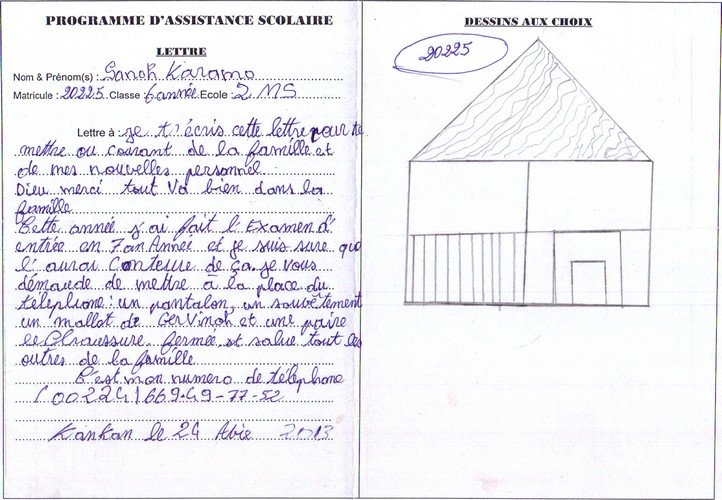 PROGRAMME D'ASSISTANCE SCOLAIRE
LETTRE
Nom & Prénom(s) : Sanoh Karamo
Matricule : 20225 Classe 6année Ecole 2 MS
Lettre à : je t'écris cette lettre pour te
mettre ou courant de la famille et
de mes nouvelles personnel
Dieu merci tout va bien dans la
famille
Cette année j'ai fait l'Examen d'
entrée en 7an Année et je suis sure que
l'aurai Conteure de ça je vous
démande de mettre à la place du
télephone : un pantalon, un souvêtement
un maillot de Gervinoh et une paire
de Chraussure fermée et salue tout les
outres de la famille
C'est mon numero de téléphone
(00224) 669-49-77-52
Kankan le 24 2013
DESSINS AUX CHOIX
20225